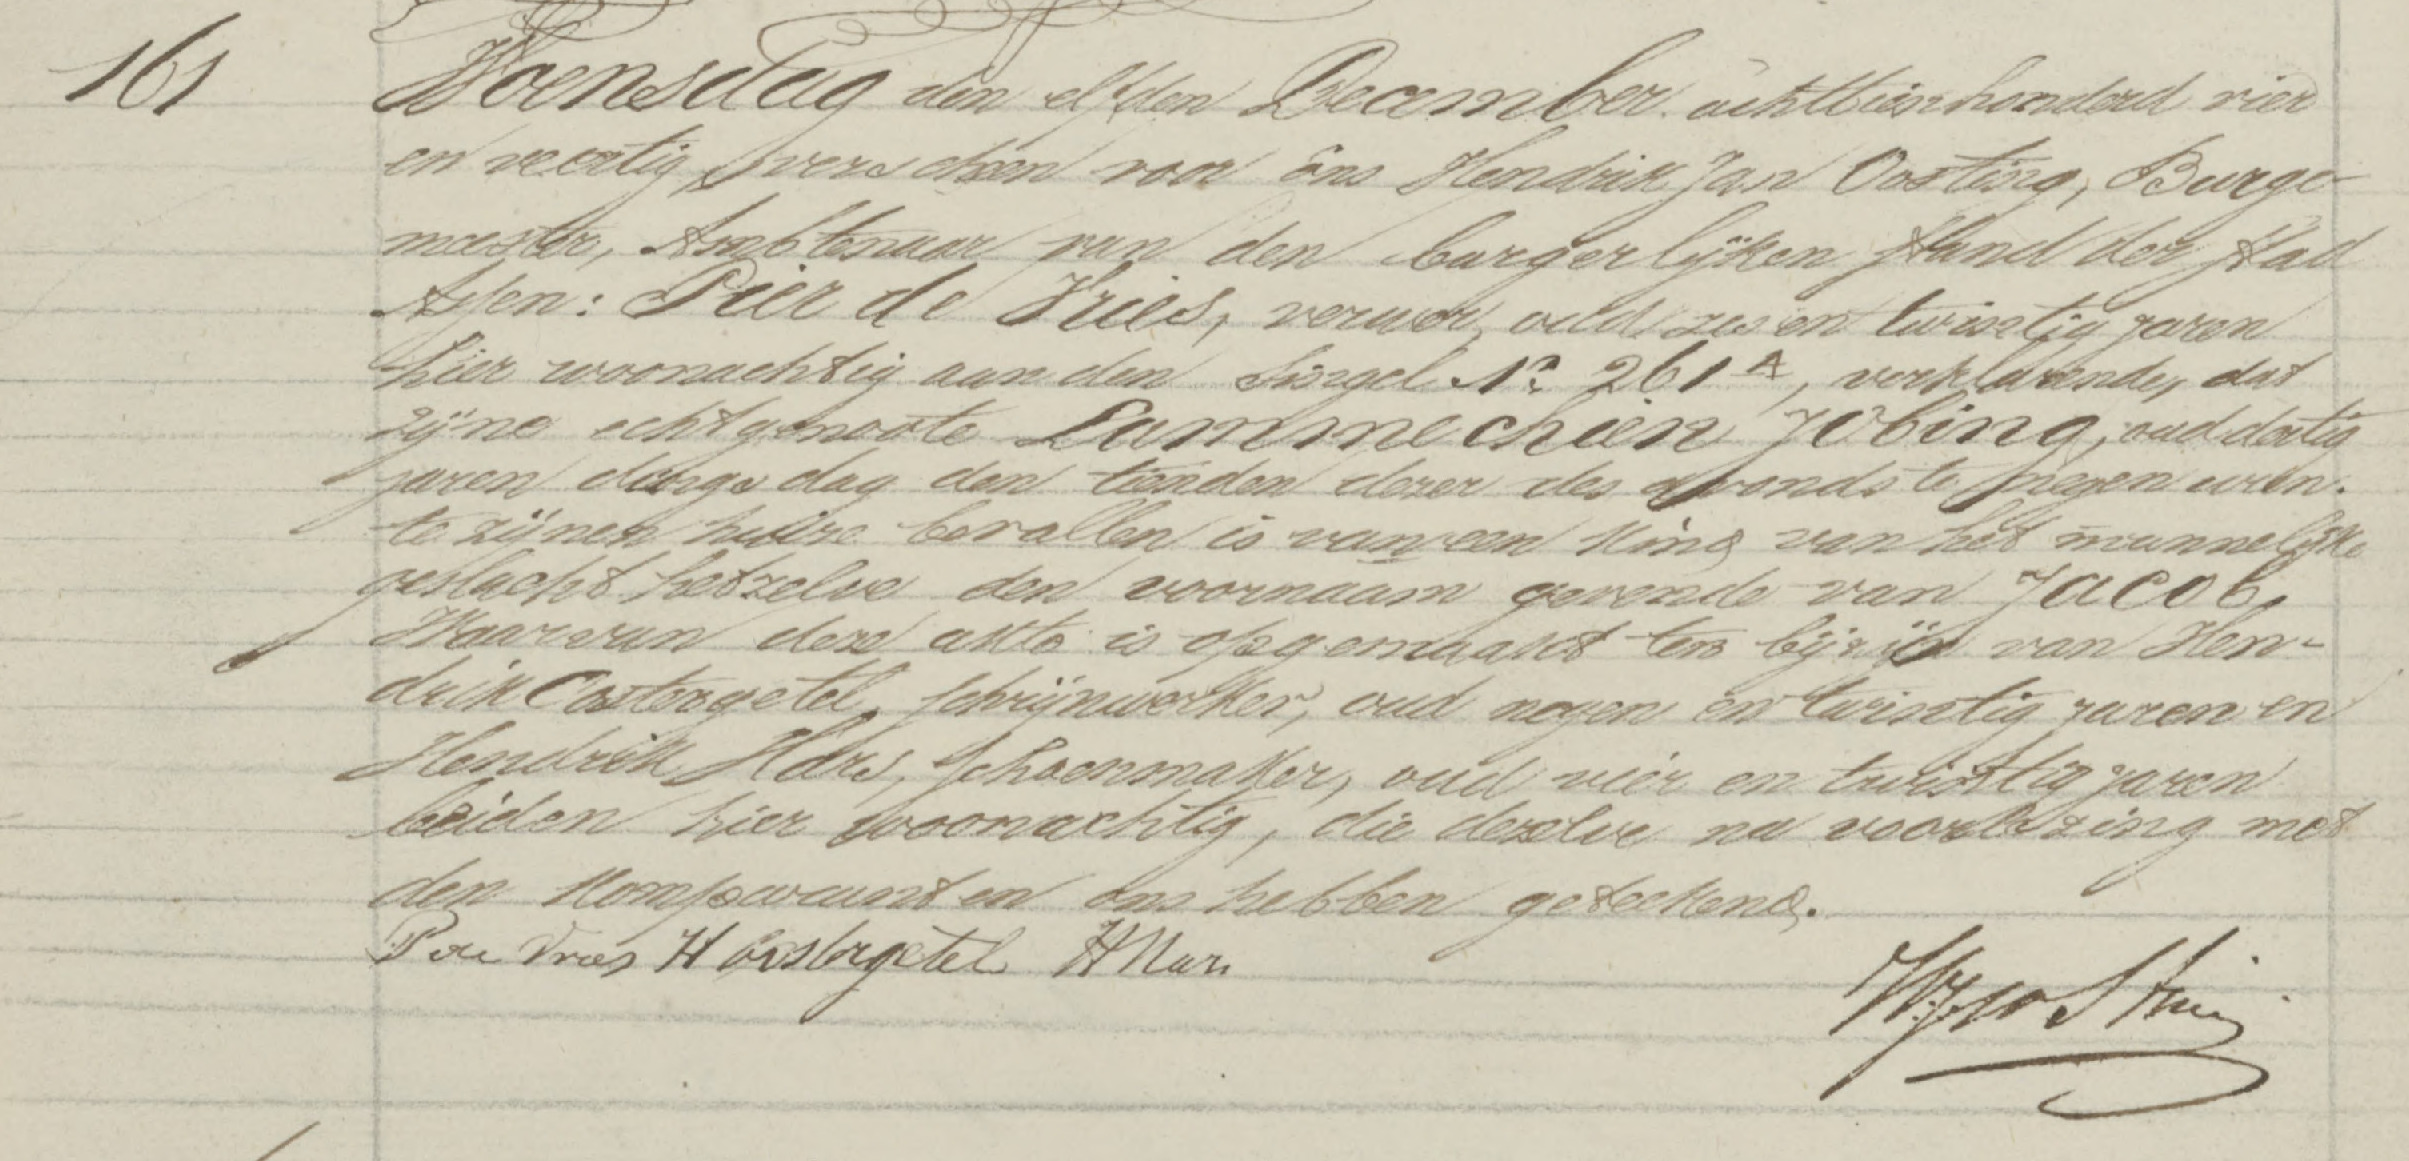 161
Woensdag den elfden December achttienhonderd vier
en veertig, verscheen voor Ons Hendrik Jan Oosting, Burge-
meester, Ambtenaar van den burgerlijken stand der stad
Assen: Pier de Vries, verwer, oud zes en twintig jaren
hier woonachtig aan den Singel No. 261 A, verklarende, dat
zijne echtgenoote Lammechien Jobing, oud dertig
jaren dingsdag den tienden dezer des avonds te negen uren
te zijnen huize bevallen is van een kind van het mannelijke
geslacht hetzelve den voornaam gevende van Jacob,
Waarvan deze akte is opgemaakt ten bijzijn van Hen-
drik Oostergetel, schrijnwerker, oud negen en twintig jaren en
Hendrik , schoenmaker, oud vier en twintig jaren
beiden hier woonachtig, die dezelve na voorlezing met
den komparant en ons hebben geteekend.
P de Vries H Oostergetel H
HJOosting